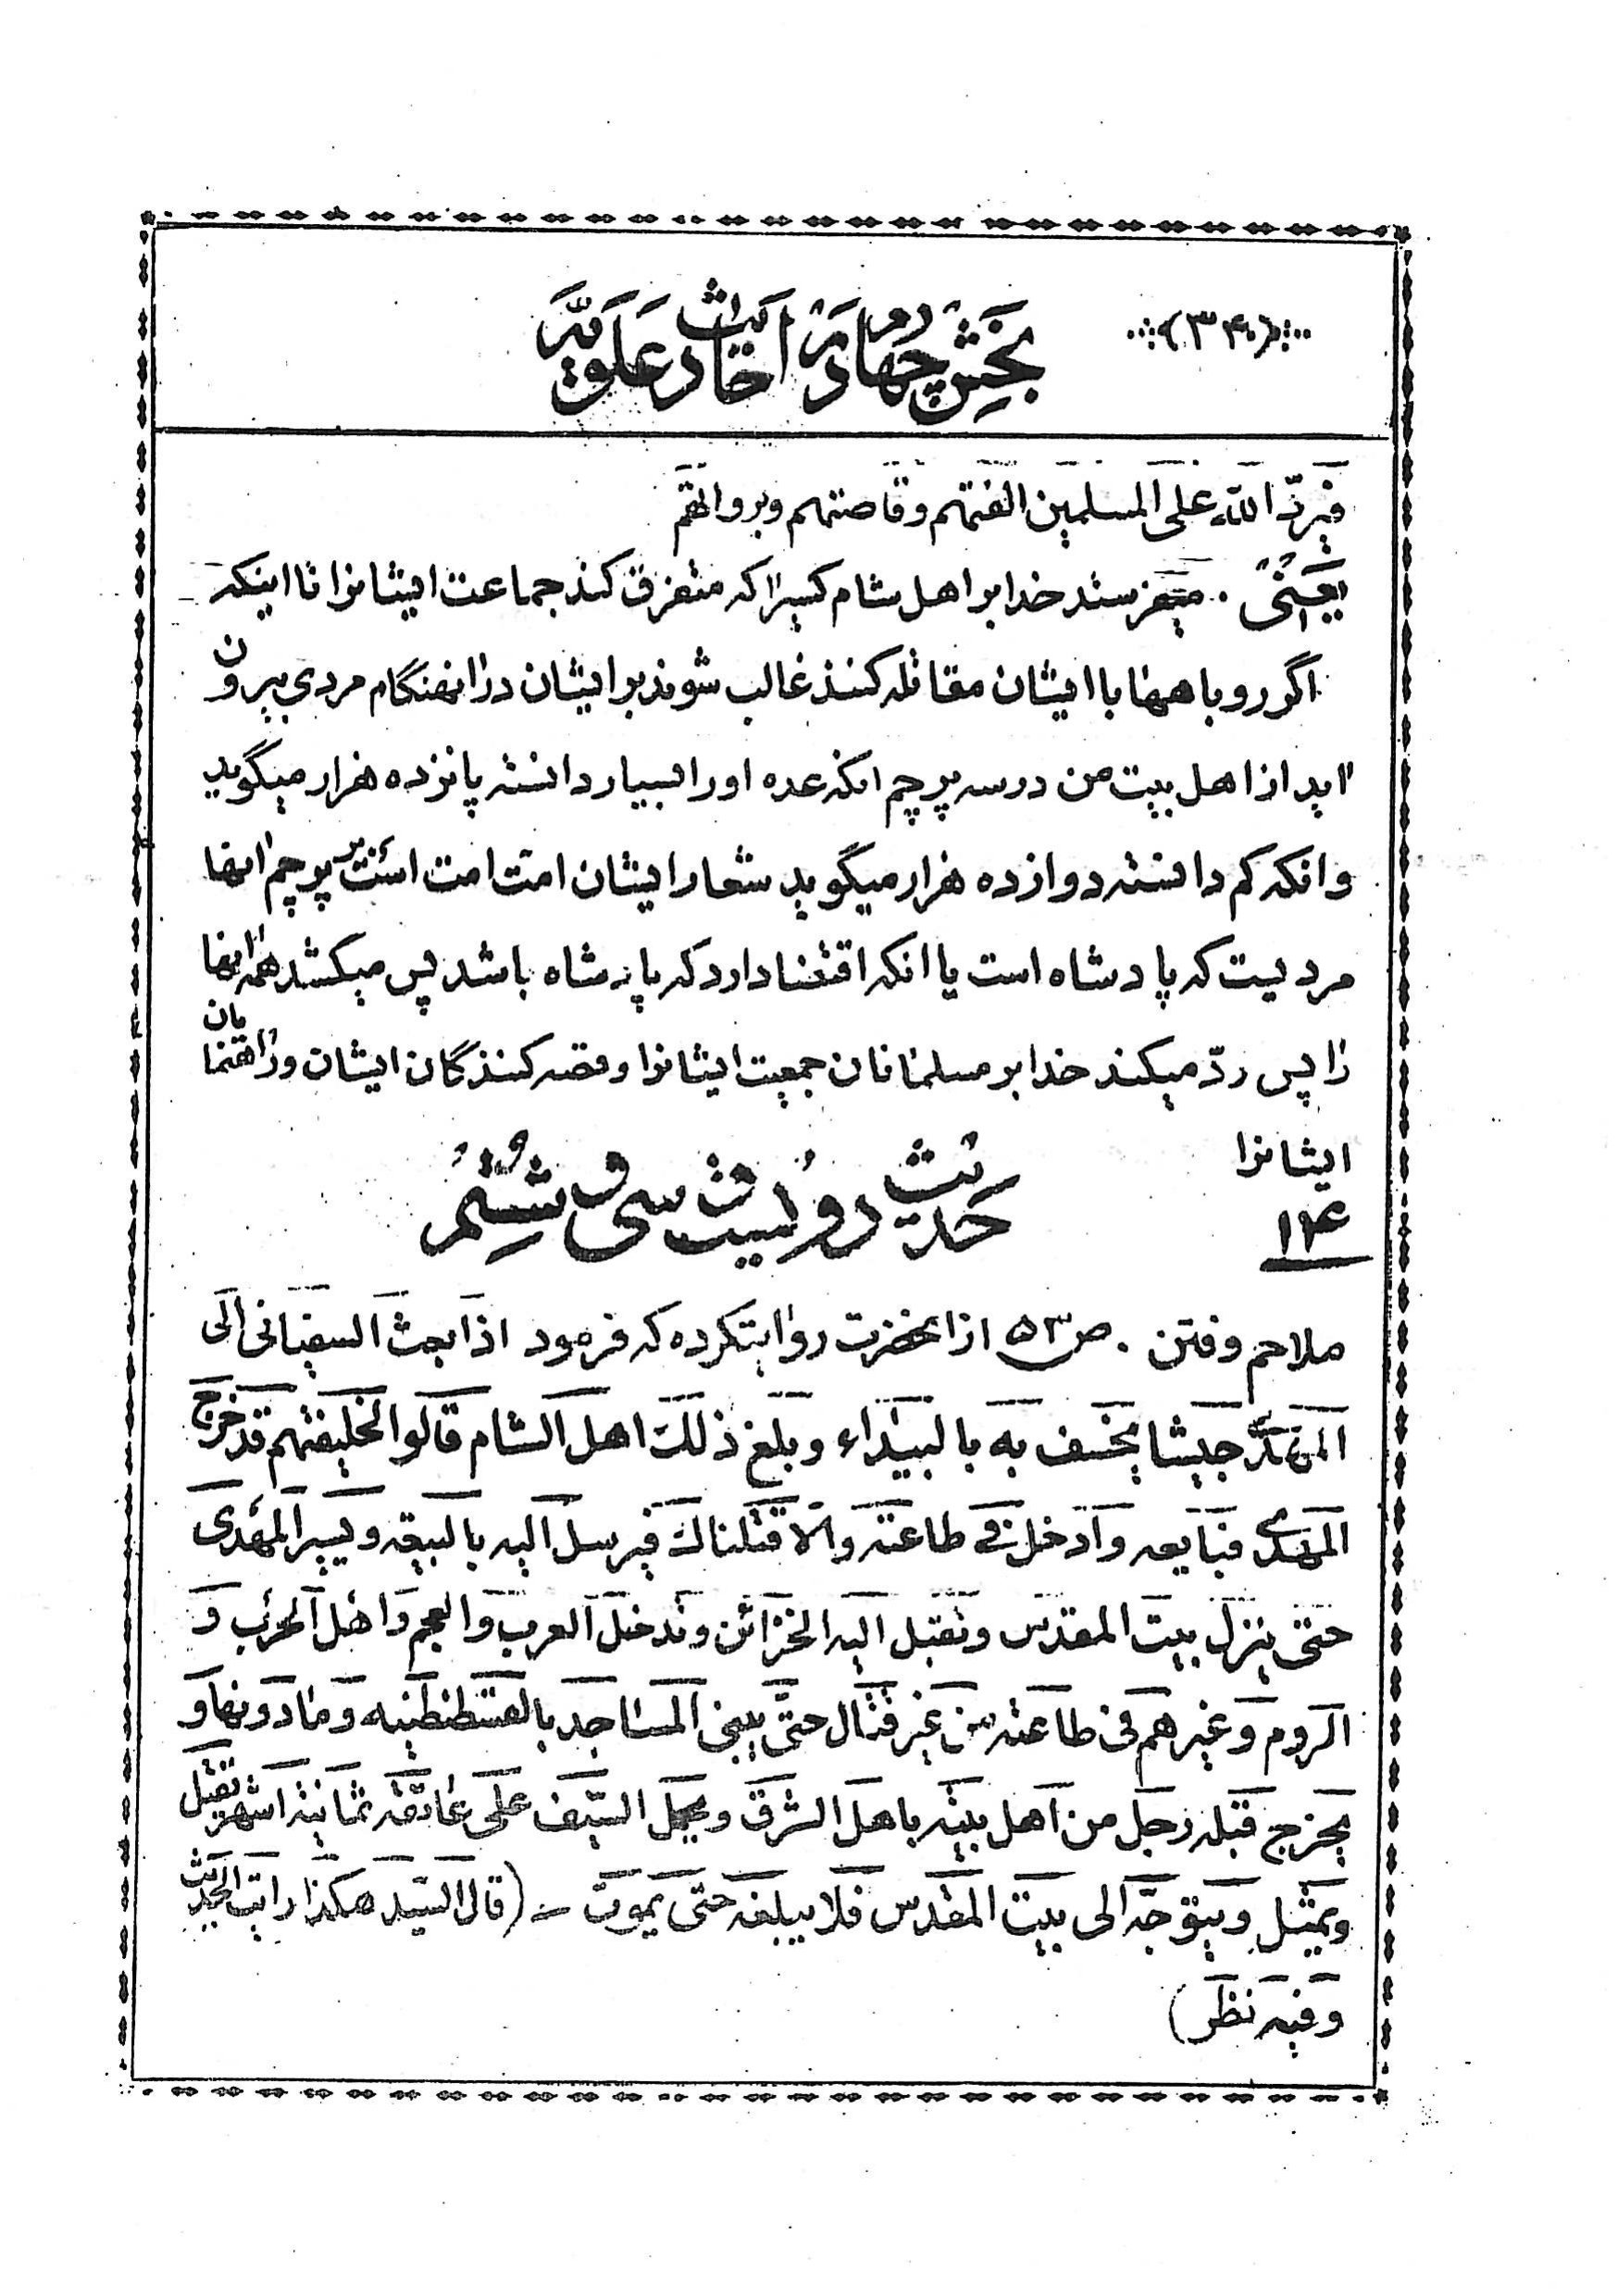 (۳۴۰)
بخش چهارم در احادیث علویه
فیردّ اللّه علی المسلمین الفتهم وقاصتهم وبزوالهم
یعنی . میفرستد خدا بر اهل شام کسیرا که متفرق کند جماعت ایشانرا تا اینکه
اگر روباهها با ایشان مقاتله کنند غالب شوند بر ایشان در انهنگام مردی بیرون
اید از اهل بیت من در سه پرچم انکه عده او را بسیار دانسته پانزده هزار میگوید
وانکه کم دانسته دوازده هزار میگوید شعار ایشان امت امت است بر پرچم انها
مردیست که پادشاه است یا انکه اقتضا دارد که پادشاه باشد پس میکشد همه انها
را پس ردّ میکند خدا بر مسلمانان جمعیت ایشانرا وقصه کنندگان ایشان وراهنمایان
ایشانرا
حدیث دویست سی و ششم
۱۳۶
ملاحم وفتن . ص۵۳ از انحضرت روایتکرده که فرمود اذا بعث السفیانی الی
المهدیّ جیشا یخسف به بالبیداء وبلغ ذلك اهل الشام قالوا لخلیفتهم قد خرج
المهدی فبایعه وادخل فی طاعته والا قتلناك فیرسل الیه بالبیعه ویسیر المهدی
حتی ینزل بیت المقدس وتقبل الیه الخزائن وتدخل العرب والعجم واهل الحرب و
الروم وغیرهم فی طاعته من غیر قتال حتّی یبنی المساجد بالقسطنطنیه وما دونها و
یخرج قبله رجل من اهل بیته باهل الشرق ویحمل السّیف علی عاتقه ثمانیة اشهر یقتل
ویمثل ویتوجّه الی بیت المقدس فلا یبلغه حتی یموت - (قال السّید هکذا رایت الحدیث
وفیه نظر)